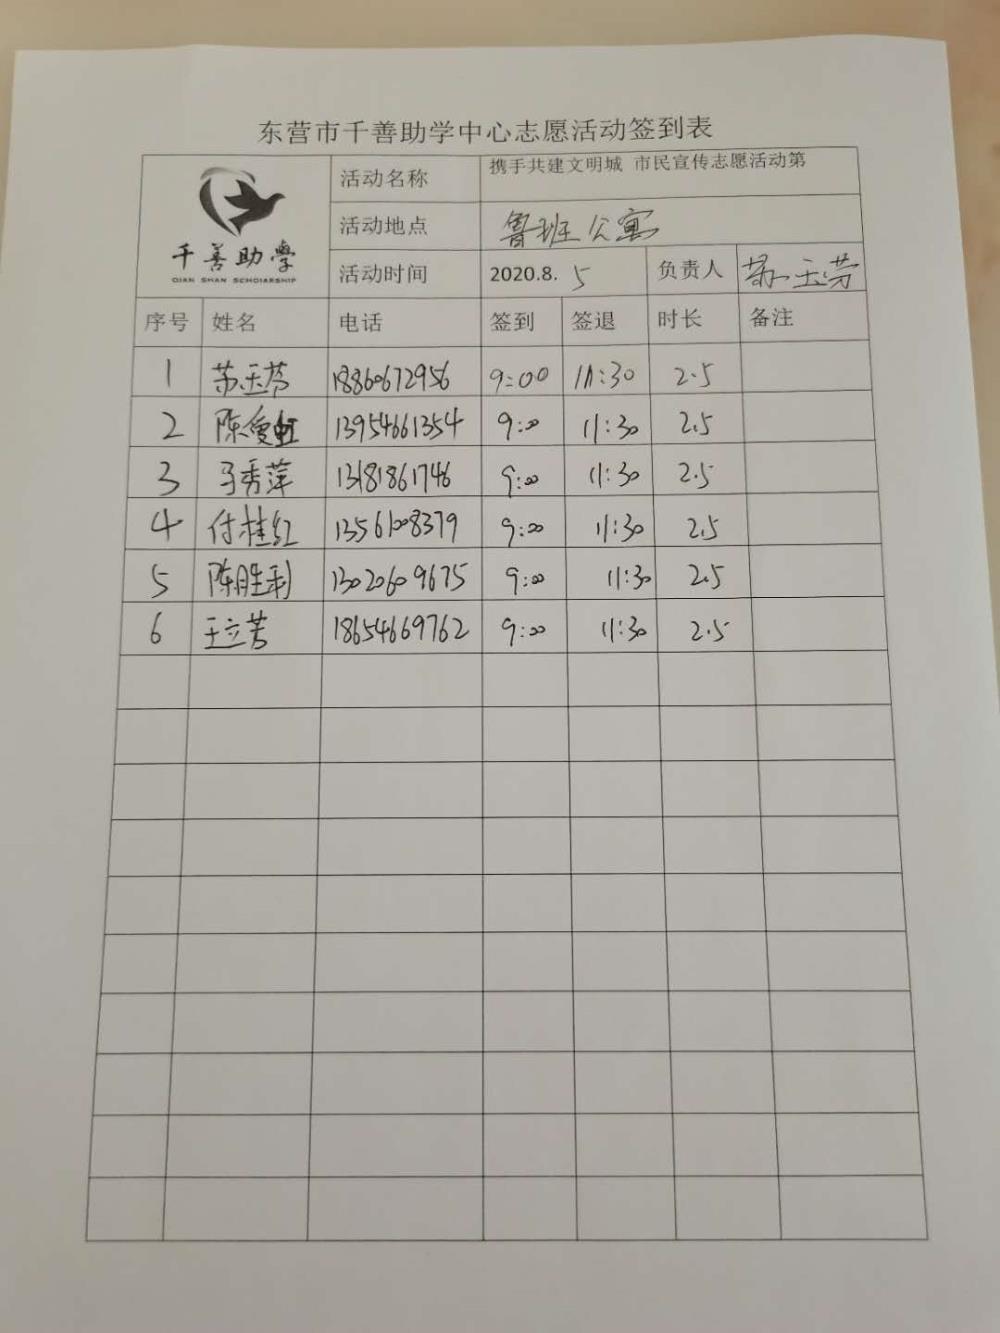 东营市千善助学中心志愿活动签到表
千善助学
QIAN SHAN SCHOLARSHIP
活动名称 携手共建文明城 市民宣传志愿活动第
活动地点 鲁班公寓
活动时间 2020.8.5 负责人 苏玉芳
序号 姓名 电话 签到 签退 时长 备注
1 苏玉芳 18860672956 9:00 11:30 2.5
2 陈爱虹 13954661354 9:00 11:30 2.5
3 马秀萍 13181861746 9:00 11:30 2.5
4 付桂红 13561008379 9:00 11:30 2.5
5 陈胜利 13020609675 9:00 11:30 2.5
6 王立芳 18654669762 9:00 11:30 2.5